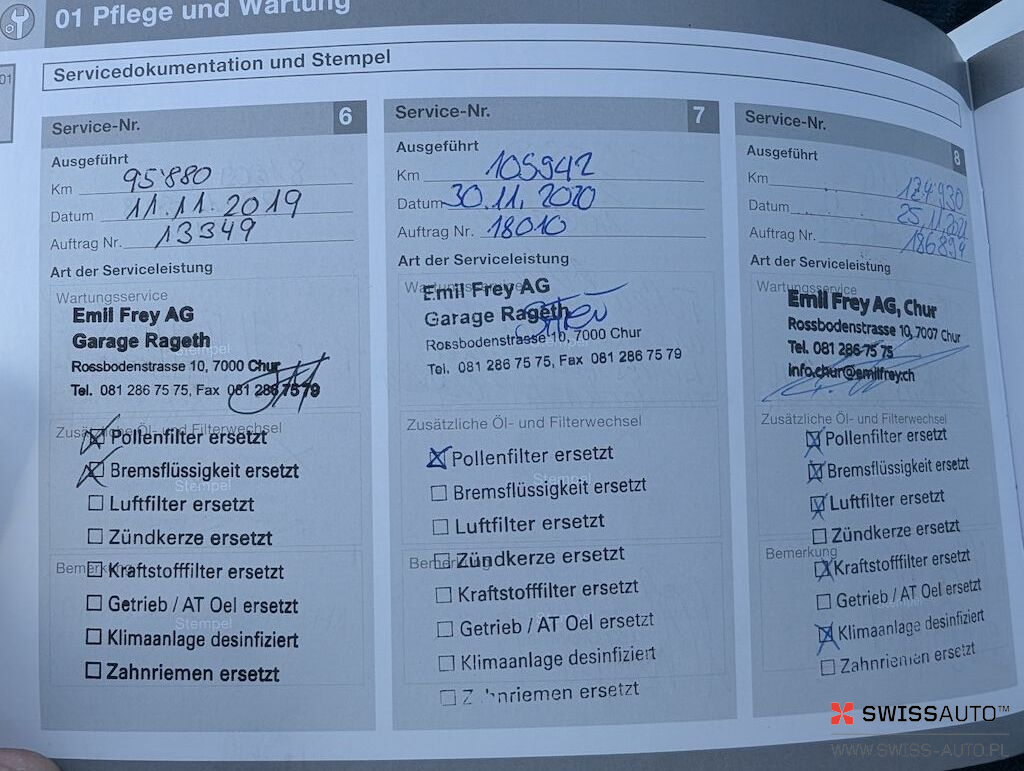 01 Pflege und Wartung
01
Servicedokumentation und Stempel
Service-Nr. 6
Ausgeführt
Km 95'880
Datum 11.11.2019
Auftrag Nr. 13349
Art der Serviceleistung
Wartungsservice
Emil Frey AG
Garage Rageth
Stempel
Rossbodenstrasse 10, 7000 Chur
Tel. 081 286 75 75, Fax 081 286 75 79
Zusätzliche Öl- und Filterwechsel
Pollenfilter ersetzt
Bremsflüssigkeit ersetzt
Stempel
Luftfilter ersetzt
Zündkerze ersetzt
Bemerkung
Kraftstofffilter ersetzt
Getrieb / AT Oel ersetzt
Stempel
Klimaanlage desinfiziert
Zahnriemen ersetzt
Service-Nr. 7
Ausgeführt
Km 105942
Datum 30.11.2020
Auftrag Nr. 18010
Art der Serviceleistung
Wartungsservice
Emil Frey AG
Garage Rageth
Rossbodenstrasse 10, 7000 Chur
Stempel
Tel. 081 286 75 75, Fax 081 286 75 79
Zusätzliche Öl- und Filterwechsel
Pollenfilter ersetzt
Stempel
Bremsflüssigkeit ersetzt
Luftfilter ersetzt
Bemerkung
Zündkerze ersetzt
Kraftstofffilter ersetzt
Stempel
Getrieb / AT Oel ersetzt
Klimaanlage desinfiziert
Zahnriemen ersetzt
Service-Nr. 8
Ausgeführt
Km 124'930
Datum
Auftrag Nr.
Art der Serviceleistung
Wartungsservice
Emil Frey AG, Chur
Rossbodenstrasse 10, 7007 Chur
Tel. 081 286 75 75
info.chur@emilfrey.ch
Zusätzliche Öl- und Filterwechsel
Pollenfilter ersetzt
Bremsflüssigkeit ersetzt
Luftfilter ersetzt
Zündkerze ersetzt
Bemerkung
Kraftstofffilter ersetzt
Getrieb / AT Oel ersetzt
Klimaanlage desinfiziert
Zahnriemen ersetzt
SWISSAUTO™
WWW.SWISS-AUTO.PL